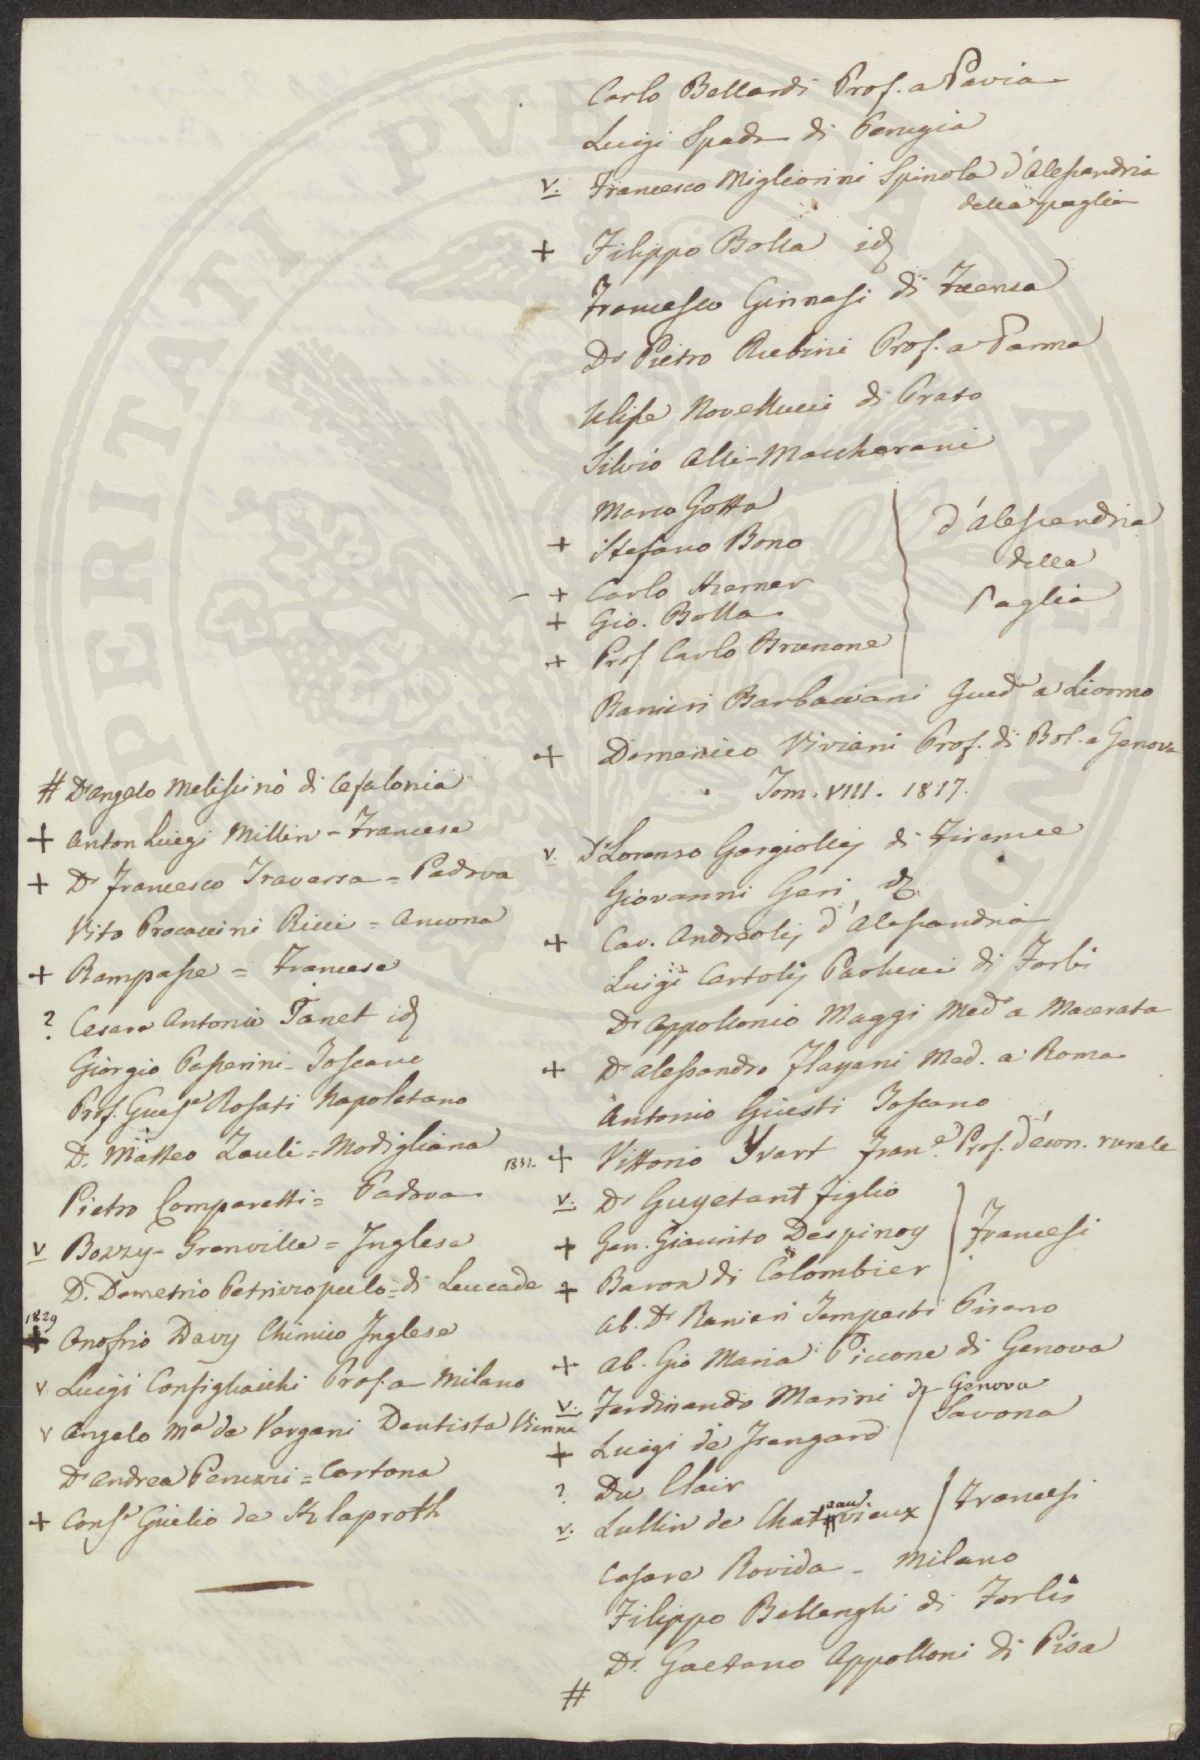 Carlo Bellardi Prof. a Pavia
Luigi Spada di Perugia
v. Francesco Migliorini Spinola d'Alessandria
della paglia
+ Filippo Bolla id
Francesco Ginnasi di Faenza
Dr Pietro Rubini Prof. a Parma
Ulisse Novellucci di Prato
Silvio Alli-Maccherani
Marco Gotta
+ Stefano Bono
- + Carlo Kerner
+ Gio. Bolla
+ Prof Carlo
d'Alessandria
della
Paglia
Ranieri Barbacciani a Livorno
+ Domenico Viviani Prof. di Bot. a Genova
Tom. VIII. 1817.
v. Dr Lorenzo Gargiollij di Firenze
Giovanni Geri id.
+ Cav. Andreolij d'Alessandria
Luigi Cartolij Paolucci di Forlì
Dr Appollonio Maggi Med. a Macerata
+ Dr Alessandro Flajani Med. a Roma
Antonio Giusti Toscano
1831. + Vittorio Yvart Franc.e Prof. d'écon. rurale
v. Dr Guyetant figlio
+ Gen. Giacinto Despinoy
+ Baron di Colombier
Francesi
Ab. Dr Ranieri Tempesti Pisano
+ Ab. Gio Maria Piccone di Genova
v. Ferdinando Marini di Genova
+ Luigi de
Savona
? Du Clair
v. Lullin de Chateauvieux
Francesi
Cesare Rovida - Milano
Filippo Bellenghi di Forlì
Dr. Gaetano Appolloni di Pisa
#
# Dr Angelo Melissinò di Cefalonia
+ Anton Luigi Millin - Francese
+ Dr Francesco Traversa = Padova
Vito Procaccini Ricci = Ancona
+ Rampasse = Francese
? Cesare Antonio Tanet id
Giorgio Passerini - Toscano
Prof. Rosati Napoletano
D. Matteo Zauli = Modigliana
Pietro Comparetti = Padova
v Bozzy - Granville = Inglese
D. Demetrio Petrizzopulo = di Leucade
1829
+ Onofrio Davy Chimico Inglese
v Luigi Configliachi Prof. a Milano
v Angelo Ma de Vergani Dentista Vienna
Dr Andrea Peruzzi = Cortona
+ Cons.e Giulio de Klaproth